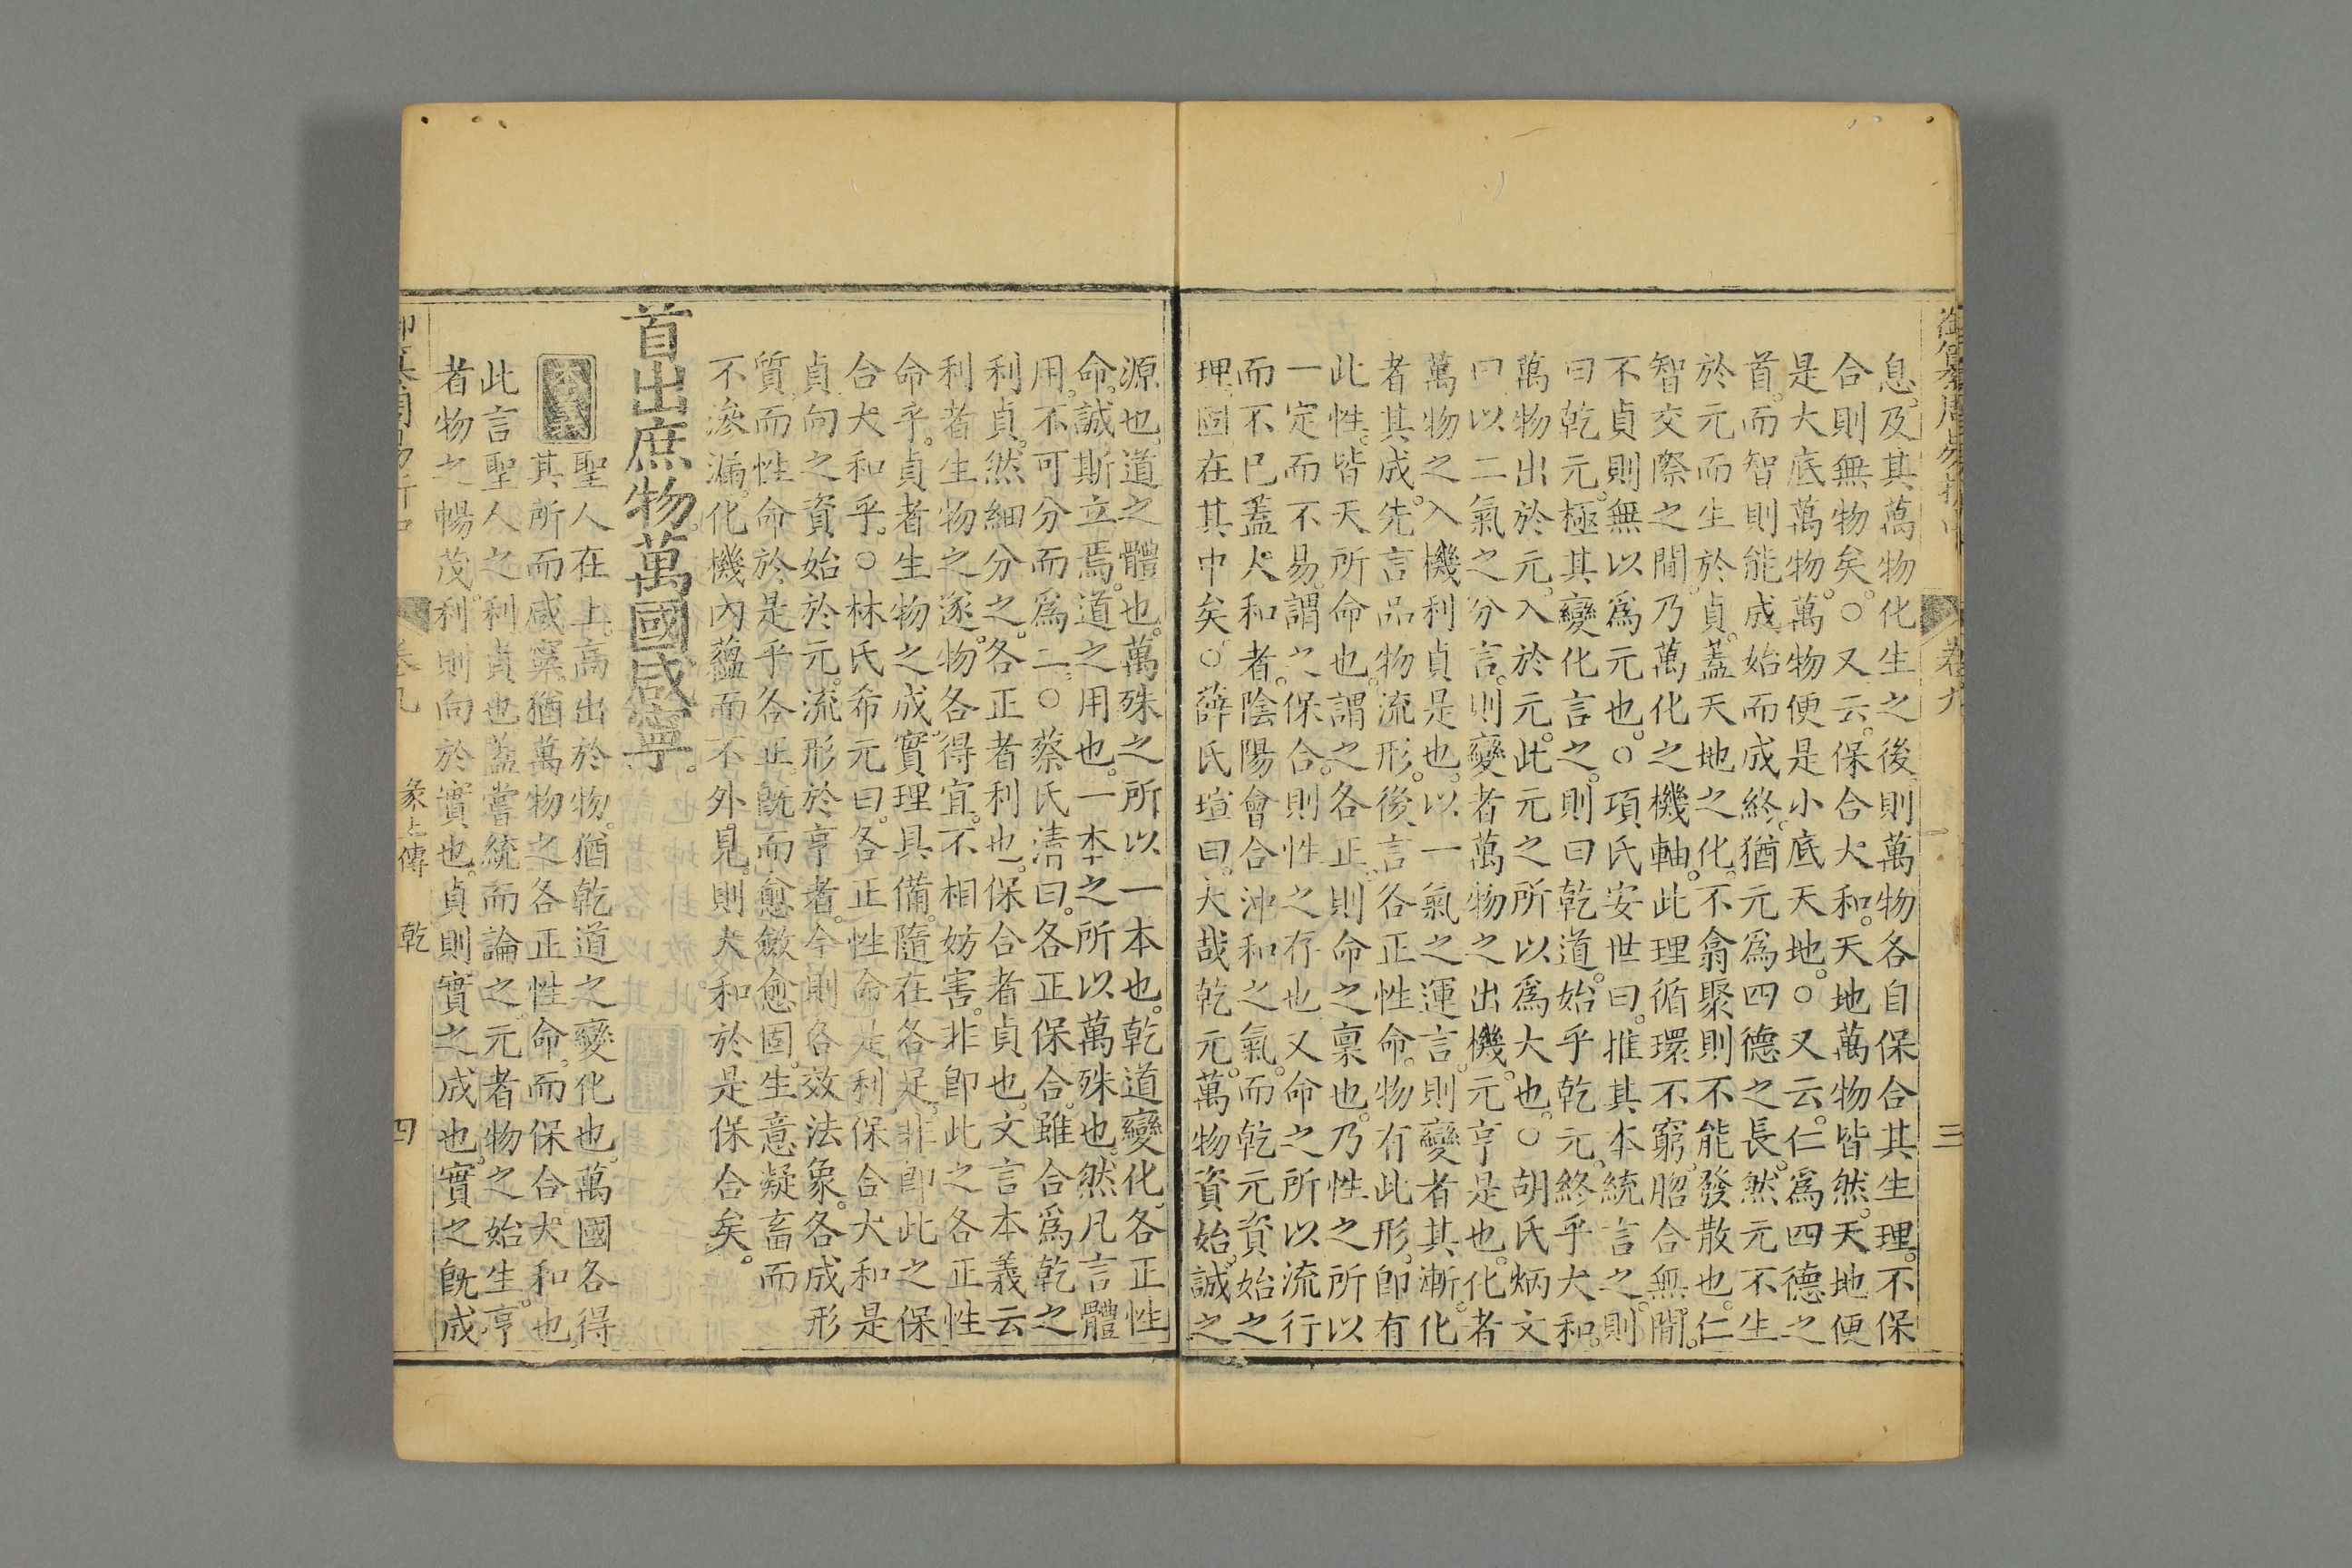 御纂周易折中
卷九
三
息。及其萬物化生之後則萬物各自保合其生理。不保
合則無物矣。○又云。保合大和。天地萬物皆然。天地便
是大底萬物。萬物便是小底天地。○又云。仁爲四德之
首。而智則能成始而成終。猶元爲四德之長。然元不生
於元而生於貞。蓋天地之化。不翕聚則不能發散也。仁
智交際之間。乃萬化之機軸。此理循環不窮。脗合無間。
不貞則無以爲元也。○項氏安世曰。推其本統言之。則
曰乾元。極其變化言之。則曰乾道。始乎乾元。終乎大和。
萬物出於元。入於元。此元之所以爲大也。○胡氏炳文
曰以二氣之分言。則變者萬物之出機。元亨是也。化者
萬物之入機利貞是也。以一氣之運言。則變者其漸。化
者其成。先言品物流形。後言各正性命。物有此形。卽有
此性。皆天所命也。謂之各正。則命之稟也。乃性之所以
一定而不易。謂之保合。則性之存也又命之所以流行
而不已蓋大和者。陰陽會合沖和之氣。而乾元資始之
理。固在其中矣。○薛氏瑄曰。大哉乾元。萬物資始。誠之
源也。道之體也。萬殊之所以一本也。乾道變化。各正性
命。誠斯立焉。道之用也。一本之所以萬殊也。然凡言體
用。不可分而爲二。○蔡氏清曰。各正保合。雖合爲乾之
利貞。然細分之。各正者利也。保合者貞也。文言本義云
利者生物之遂。物各得宜。不相妨害。非卽此之各正性
命乎。貞者生物之成。實理具備。隨在各足。非卽此之保
合大和乎。○林氏希元曰。各正性命是利。保合大和是
貞向之資始於元。流形於亨者。今則各效法象。各成形
質。而性命於是乎各正。旣而愈斂愈固。生意凝畜而
不滲漏。化機內蘊而不外見。則大和於是保合矣。
首出庶物。萬國咸寧。
本義
聖人在上。高出於物。猶乾道之變化也。萬國各得
其所而咸寧。猶萬物之各正性命。而保合大和也。
此言聖人之利貞也。蓋嘗統而論之。元者物之始生。亨
者物之暢茂。利則向於實也。貞則實之成也。實之旣成
卷九
彖上傳
乾
四